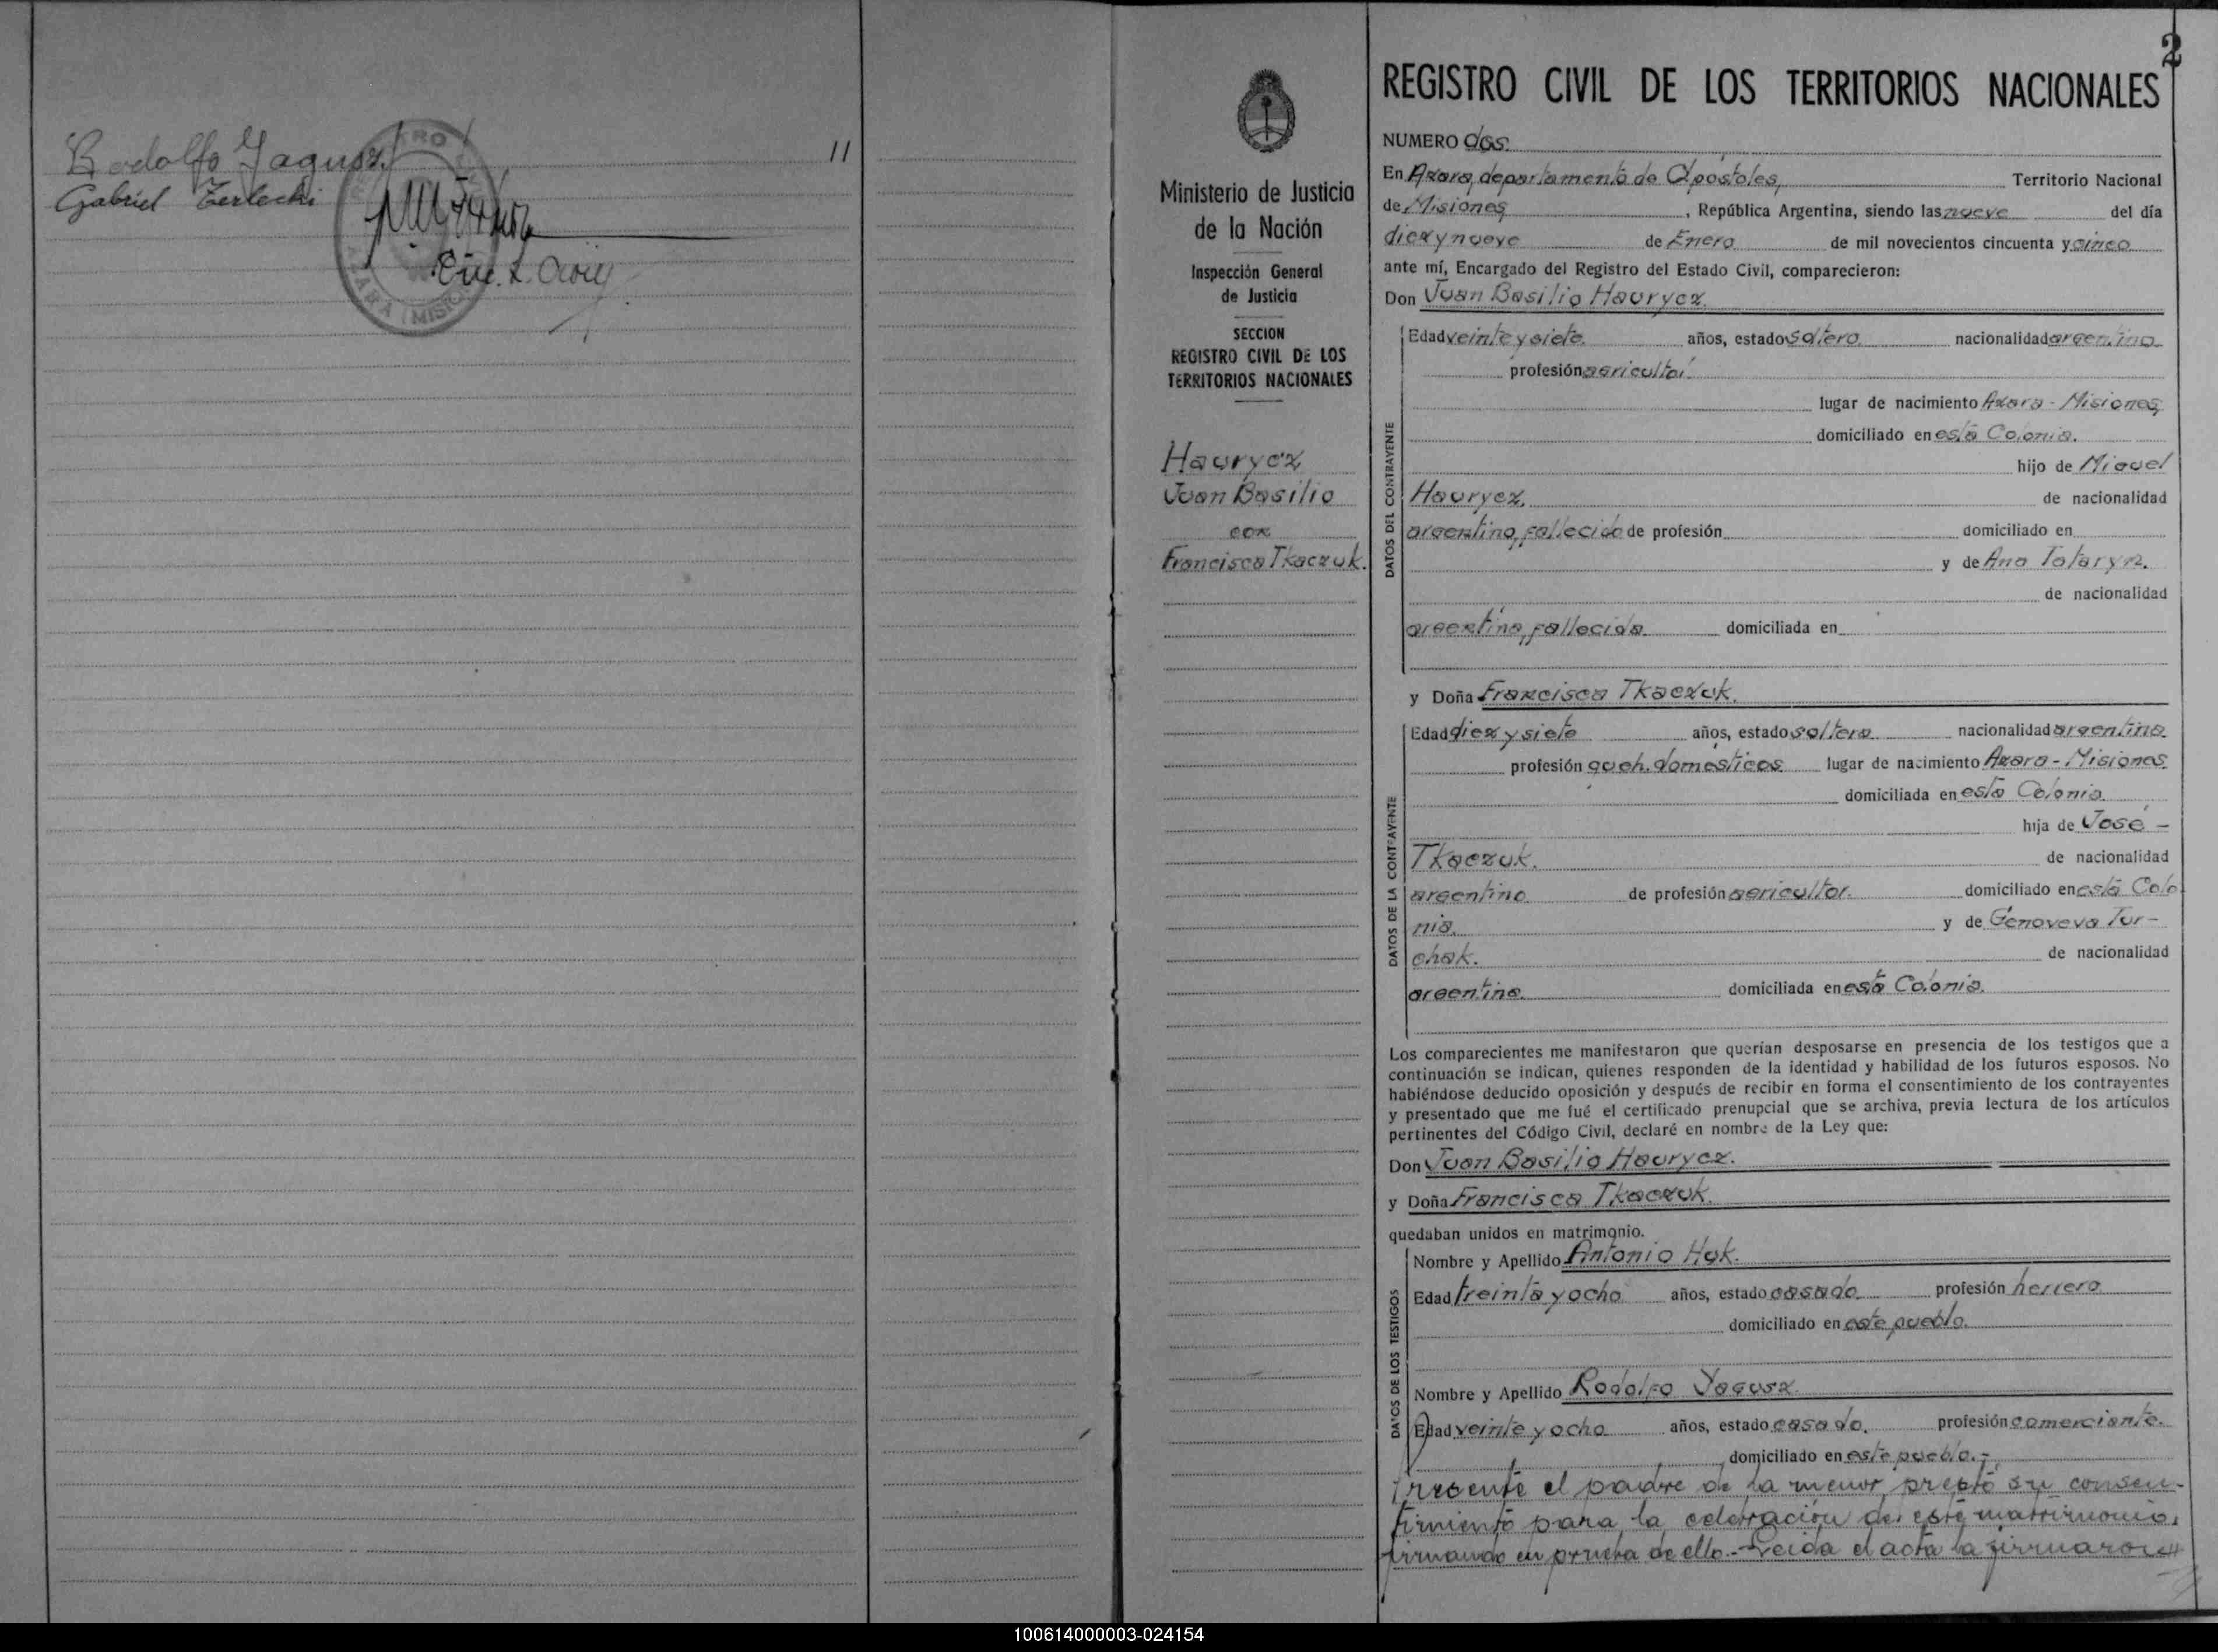 11
Rodolfo Yagusz
Gabriel Zerlecki
2
REGISTRO CIVIL DE LOS TERRITORIOS NACIONALES
Ministerio de Justicia
de la Nación
Inspección General
de Justicia
SECCION
REGISTRO CIVIL DE LOS
TERRITORIOS NACIONALES
Hauryez
Juan Basilio
con
Francisca Tkaczuk.
NUMERO dos.
En Azara, departamento de Apóstoles, Territorio Nacional
de Misiones, República Argentina, siendo las nueve del día
diez y nueve de Enero de mil novecientos cincuenta y cinco
ante mí, Encargado del Registro del Estado Civil, comparecieron:
Don Juan Basilio Hauryez.
DATOS DEL CONTRAYENTE
Edad veinte y siete años, estado soltero nacionalidad argentino
profesión agricultor
lugar de nacimiento Azara - Misiones,
domiciliado en esta Colonia.
hijo de Miguel
Hauryez. de nacionalidad
argentino, fallecido de profesión domiciliado en
y de Ana Tataryn.
de nacionalidad
argentina, fallecida. domiciliada en
y Doña Francisca Tkaczuk.
DATOS DE LA CONTRAYENTE
Edad diez y siete años, estado soltera nacionalidad argentina
profesión queh. domésticos lugar de nacimiento Azara - Misiones
domiciliada en esta Colonia.
hija de José -
Tkaczuk. de nacionalidad
argentino de profesión agricultor. domiciliado en esta Colo
nia. y de Genoveva Tur-
chak. de nacionalidad
argentina. domiciliada en esta Colonia.
Los comparecientes me manifestaron que querían desposarse en presencia de los testigos que a
continuación se indican, quienes responden de la identidad y habilidad de los futuros esposos. No
habiéndose deducido oposición y después de recibir en forma el consentimiento de los contrayentes
y presentado que me fué el certificado prenupcial que se archiva, previa lectura de los artículos
pertinentes del Código Civil, declaré en nombre de la Ley que:
Don Juan Basilio Hauryez.
y Doña Francisca Tkaczuk.
quedaban unidos en matrimonio.
DATOS DE LOS TESTIGOS
Nombre y Apellido Antonio Huk.
Edad treinta y ocho años, estado casado profesión herrero
domiciliado en este pueblo.
Nombre y Apellido Rodolfo Yagusz
Edad veinte y ocho años, estado casado. profesión comerciante.
domiciliado en este pueblo.-
Presente el padre de la menor, prestó su consen-
timiento para la celebración de este matrimonio,
firmando en prueba de ello.- Leída el acta la firmaron
100614000003-024154